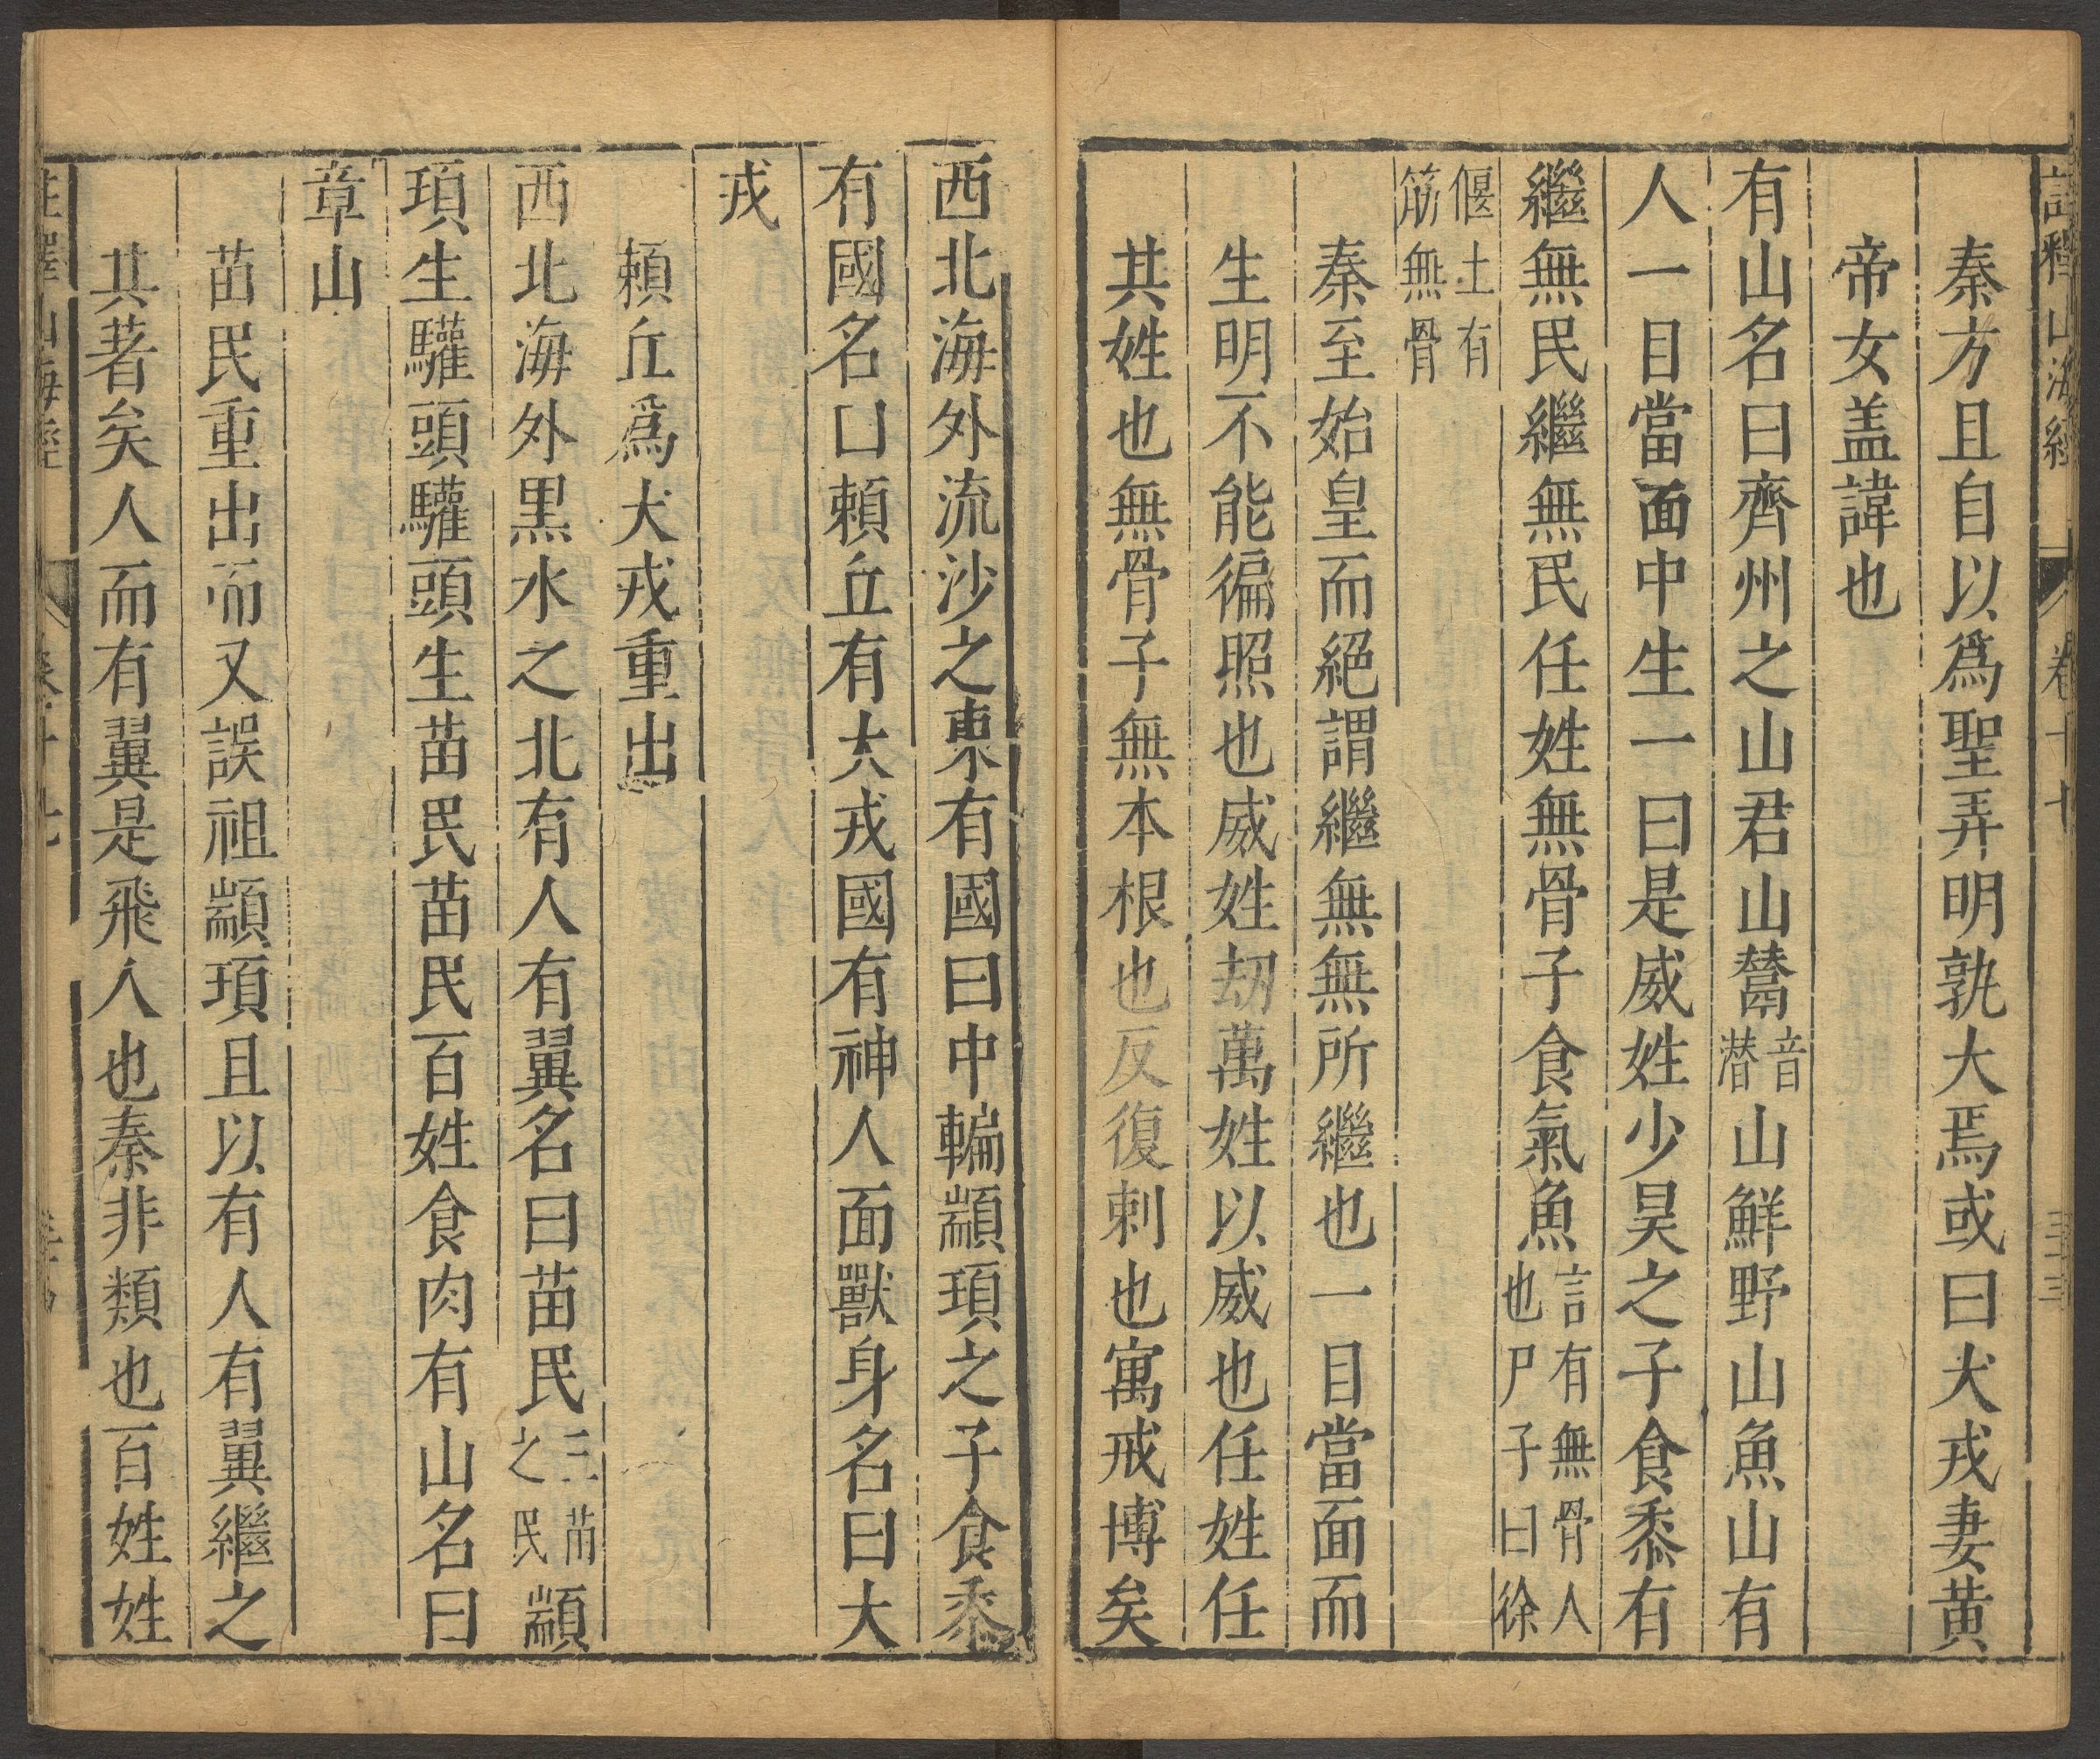 註釋山海經 卷十七 三十三
秦方且自以爲聖弄明孰大焉或曰犬戎妻黄
帝女盖諱也
有山名曰齊州之山君山鬵音潜山鮮野山魚山有
人一目當面中生一曰是威姓少昊之子食黍有
繼無民繼無民任姓無骨子食氣魚言有無骨人也尸子曰徐
偃土有筋無骨
秦至始皇而絕謂繼無無所繼也一目當面而
生明不能徧照也威姓劫萬姓以威也任姓任
共姓也無骨子無本根也反復剌也寓戒博矣
西北海外流沙之東有國曰中輪顓頊之子食黍
有國名曰賴丘有大戎國有神人面獸身名曰大
戎
賴丘爲犬戎重出
西北海外黒水之北有人有翼名曰苗民三苗之民顓
頊生驩頭驩頭生苗民苗民百姓食肉有山名曰
章山
苗民重出而又誤祖顓頊且以有人有翼繼之
其著矣人而有翼是飛人也秦非類也百姓姓
山海經 卷十七